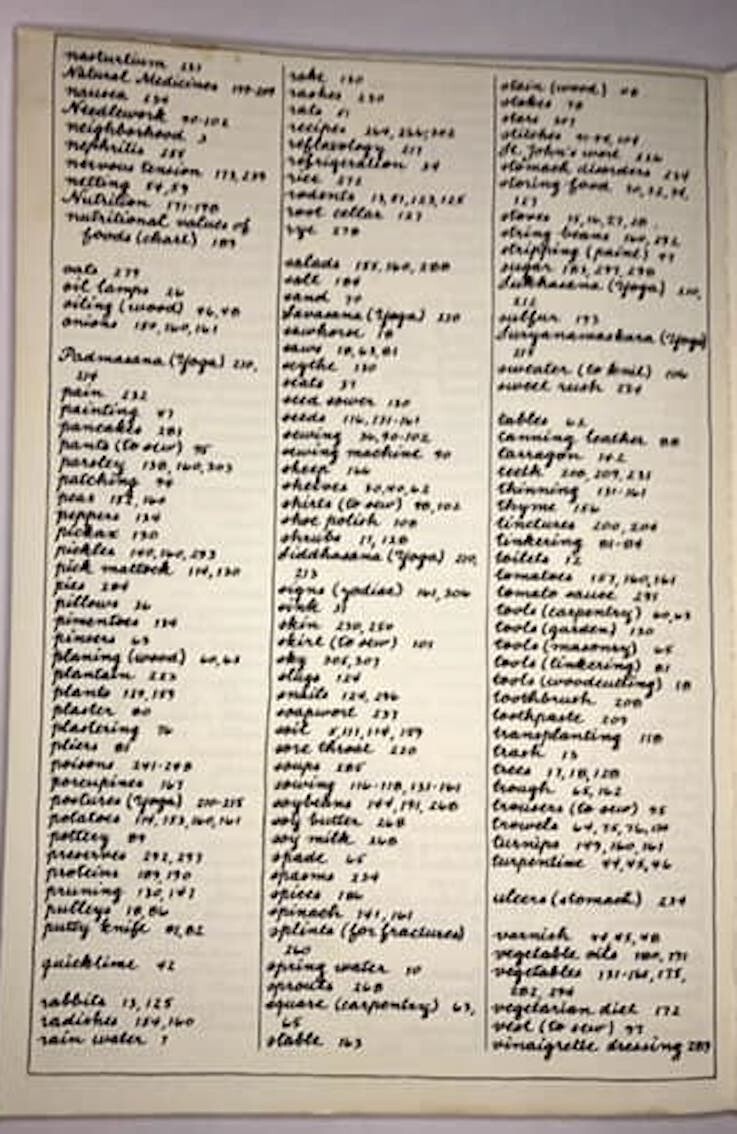 nasturtium 231
Natural Medicines
nausea 234
Needlework 90-102
neighborhood 3
nephritis
nervous tension
netting 54, 59
Nutrition 171-198
nutritional values of
foods (chart)
oats 279
oil lamps 26
oiling (wood) 46, 48
onions 154, 160, 161
Padmasana (Yoga) 210,
214
pain 232
painting 47
pancakes 281
pants (to sew) 95
parsley 138, 160, 303
patching 94
peas 152, 160
peppers 134
pickax 130
pickles 140, 160, 293
pick mattock 114, 130
pies 284
pillows 36
pimentoes 134
pincers 63
planing (wood) 60, 61
plantain 223
plants 129, 159
plaster 80
plastering 76
pliers 81
poisons 241-248
porcupines 167
postures (Yoga) 210-215
potatoes 114, 153, 160, 161
pottery 89
preserves 292, 293
proteins 189, 190
pruning 130, 147
pulleys 18, 86
putty knife 81, 82
quicklime 42
rabbits 13, 125
radishes 154, 160
rain water 7
rake 130
rashes 230
rats 51
recipes
reflexology 217
refrigeration 34
rice 272
rodents 13, 51, 123, 125
root cellar 127
rye 278
salads 155, 160, 288
salt 184
sand 70
Savasana (Yoga) 220
sawhorse 18
saws 18, 63, 81
scythe 130
seats 37
seed sower 130
seeds 116, 131-161
sewing 36, 90-102
sewing machine 90
sheep 166
shelves 30, 40, 62
shirts (to sew) 98, 102
shoe polish 108
shrubs 11, 128
Siddhasana (Yoga) 210,
213
signs (zodiac) 161, 306
sink 31
skin 230, 250
skirt (to sew) 101
sky 305, 307
slugs 124
snails 124, 296
soapwort 237
soil 5, 111, 114, 159
sore throat 220
soups 285
sowing 116-118, 131-161
soybeans 144, 191, 268
soy butter 268
soy milk 268
spade 65
spasms 234
spices 186
spinach 141, 161
splints (for fractures)
260
spring water 10
sprouts 268
square (carpentry) 63,
65
stable 163
stain (wood) 48
stakes 70
stars 307
stitches
St. John's wort 226
stomach disorders 234
storing food
127
stoves 15, 16, 27, 28
string beans 160, 292
stripping (paint) 47
sugar 183, 297, 298
Sukhasana (Yoga) 210,
212
sulfur 193
Suryanamaskara (Yoga)
219
sweater (to knit) 106
sweet rush 234
tables 62
tanning leather 88
tarragon 142
teeth 208, 209, 231
thinning 131-161
thyme 156
tinctures 200, 204
tinkering 81-84
toilets 12
tomatoes 157, 160, 161
tomato sauce 295
tools (carpentry) 60, 63
tools (garden) 130
tools (masonry) 65
tools (tinkering) 81
tools (woodcutting) 18
toothbrush 208
toothpaste 209
transplanting 118
trash 13
trees 17, 18, 128
trough 65, 162
trousers (to sew) 95
trowels
turnips 149, 160, 161
turpentine 44, 45, 46
ulcers (stomach) 234
varnish 44, 45, 48
vegetable oils 180, 191
vegetables 131-161, 175,
282, 294
vegetarian diet 172
vest (to sew) 97
vinaigrette dressing 289